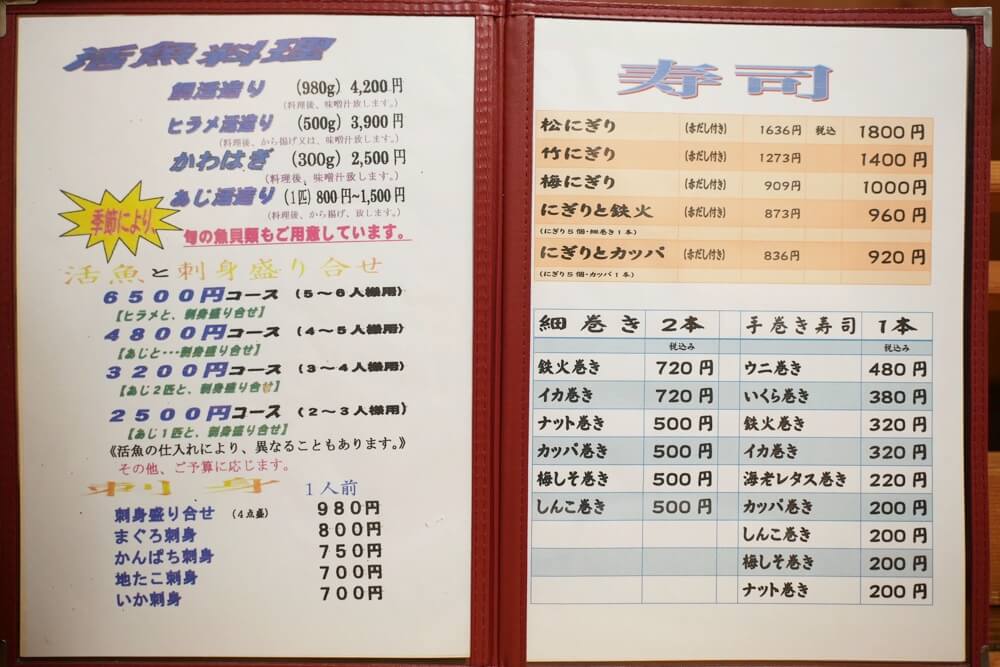 活魚料理
鯛活造り (980g) 4,200円
(料理後、味噌汁致します。)
ヒラメ活造り (500g) 3,900円
(料理後、から揚げ又は、味噌汁致します。)
かわはぎ (300g) 2,500円
(料理後、味噌汁致します。)
あじ活造り (1匹) 800円~1,500円
(料理後、から揚げ、致します。)
季節により、
旬の魚貝類もご用意しています。
活魚と刺身盛り合せ
6500円コース (5~6人様用)
【ヒラメと、刺身盛り合せ】
4800円コース (4~5人様用)
【あじと・・・刺身盛り合せ】
3200円コース (3~4人様用)
【あじ2匹と、刺身盛り合せ】
2500円コース (2~3人様用)
【あじ1匹と、刺身盛り合せ】
《活魚の仕入れにより、異なることもあります。》
その他、ご予算に応じます。
刺身 1人前
刺身盛り合せ (4点盛) 980円
まぐろ刺身 800円
かんぱち刺身 750円
地たこ刺身 700円
いか刺身 700円
寿司
松にぎり (赤だし付き) 1636円 税込 1800円
竹にぎり (赤だし付き) 1273円 1400円
梅にぎり (赤だし付き) 909円 1000円
にぎりと鉄火 (赤だし付き) 873円 960円
(にぎり5個・細巻き1本)
にぎりとカッパ (赤だし付き) 836円 920円
(にぎり5個・カッパ1本)
細巻き 2本 手巻き寿司 1本
税込み 税込み
鉄火巻き 720円 ウニ巻き 480円
イカ巻き 720円 いくら巻き 380円
ナット巻き 500円 鉄火巻き 320円
カッパ巻き 500円 イカ巻き 320円
梅しそ巻き 500円 海老レタス巻き 220円
しんこ巻き 500円 カッパ巻き 200円
しんこ巻き 200円
梅しそ巻き 200円
ナット巻き 200円